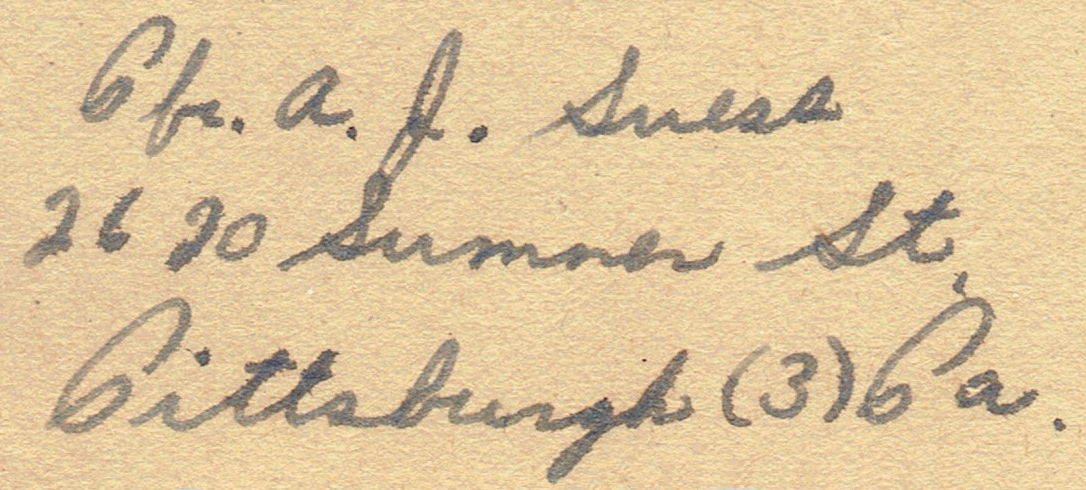 Pfc. A. J. Suess
2620 Sumner St,
Pittsburgh (3) Pa.